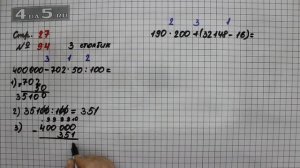 4 ДО 5.RU
Стр. 27
№ 94 3 столбик
3 1 2
400 000 - 702 · 50 : 100 =
1) 702
50
35100
2) 35100 : 100 = 351
3) 400 000
351
2 3 1
190 · 200 + (32148 - 16) =